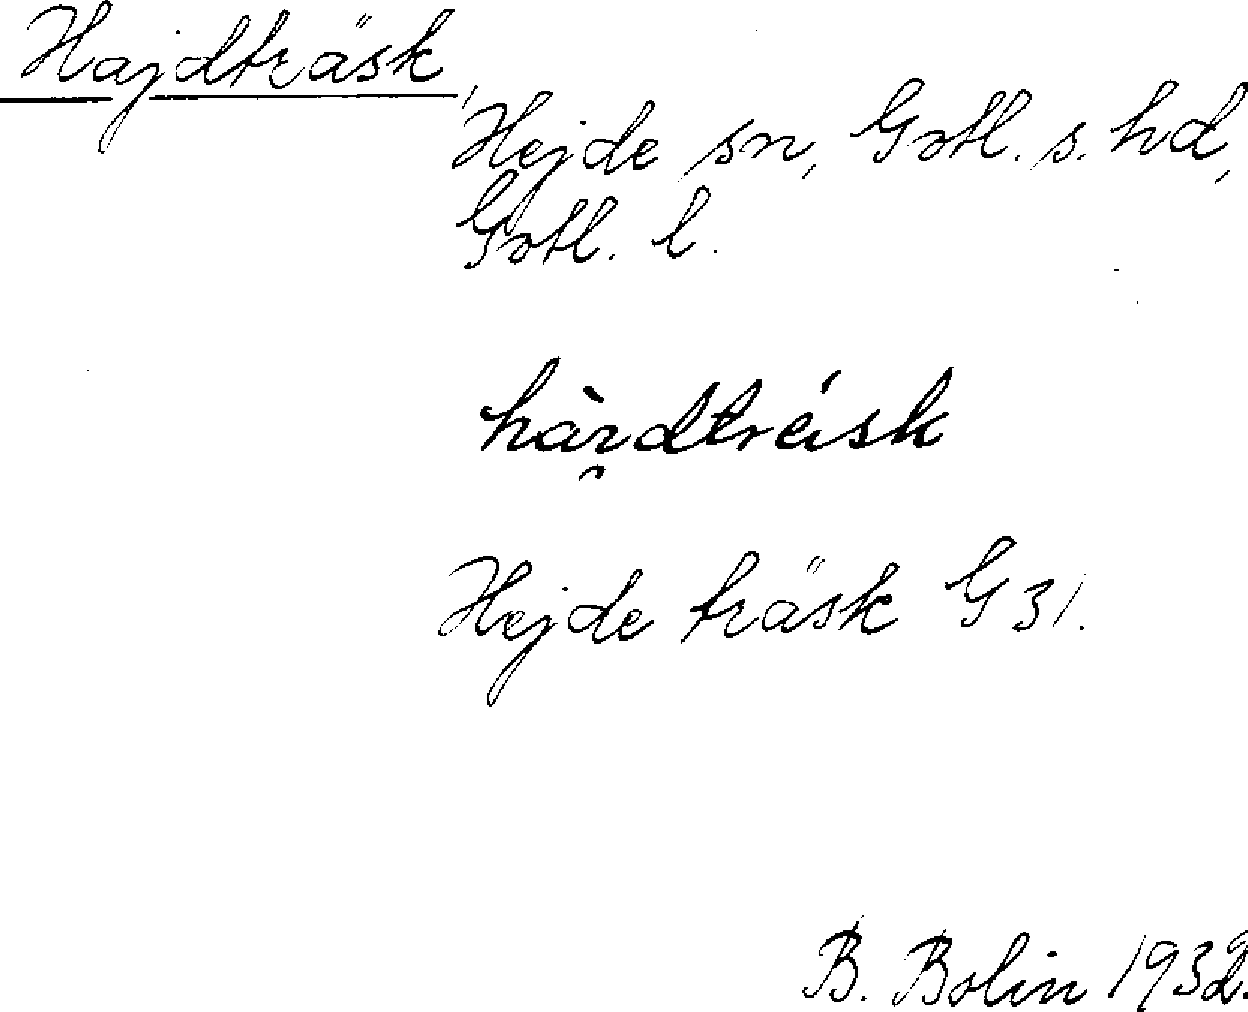 Hajdträsk,
Hejde sn, Gotl. s. hd,
Gotl. l.
Hejde träsk G 31.
B. Bolin 1932.